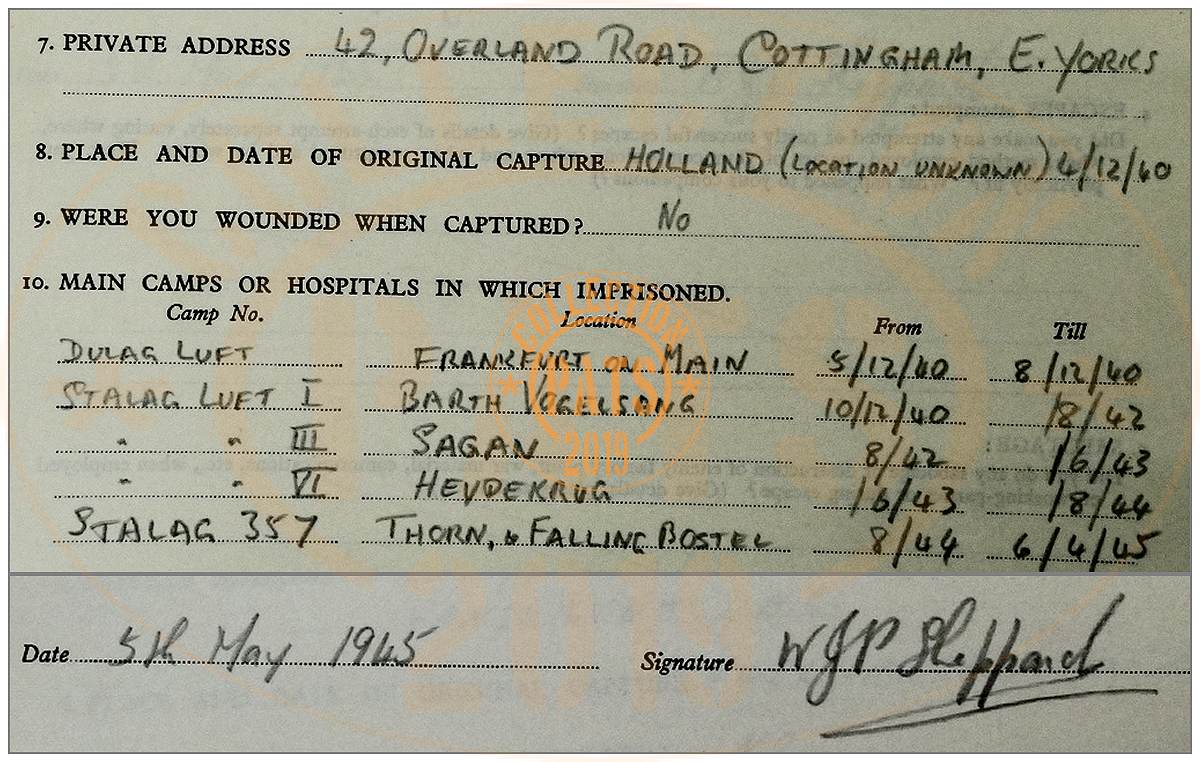 7. PRIVATE ADDRESS 42, OVERLAND ROAD, COTTINGHAM, E. YORKS
8. PLACE AND DATE OF ORIGINAL CAPTURE HOLLAND (LOCATION UNKNOWN) 4/12/40
9. WERE YOU WOUNDED WHEN CAPTURED? No
10. MAIN CAMPS OR HOSPITALS IN WHICH IMPRISONED.
Camp No. Location From Till
DULAG LUFT FRANKFURT ON MAIN 5/12/40 8/12/40
STALAG LUFT I BARTH VOGELSANG 10/12/40 /8/42
" " III SAGAN 8/42 /6/43
" " VI HEYDEKRUG /6/43 /8/44
STALAG 357 THORN, & FALLING BOSTEL 8/44 6/4/45
COLLECTION
PATS
2019
Date 5th May 1945 Signature WJP Sheppard